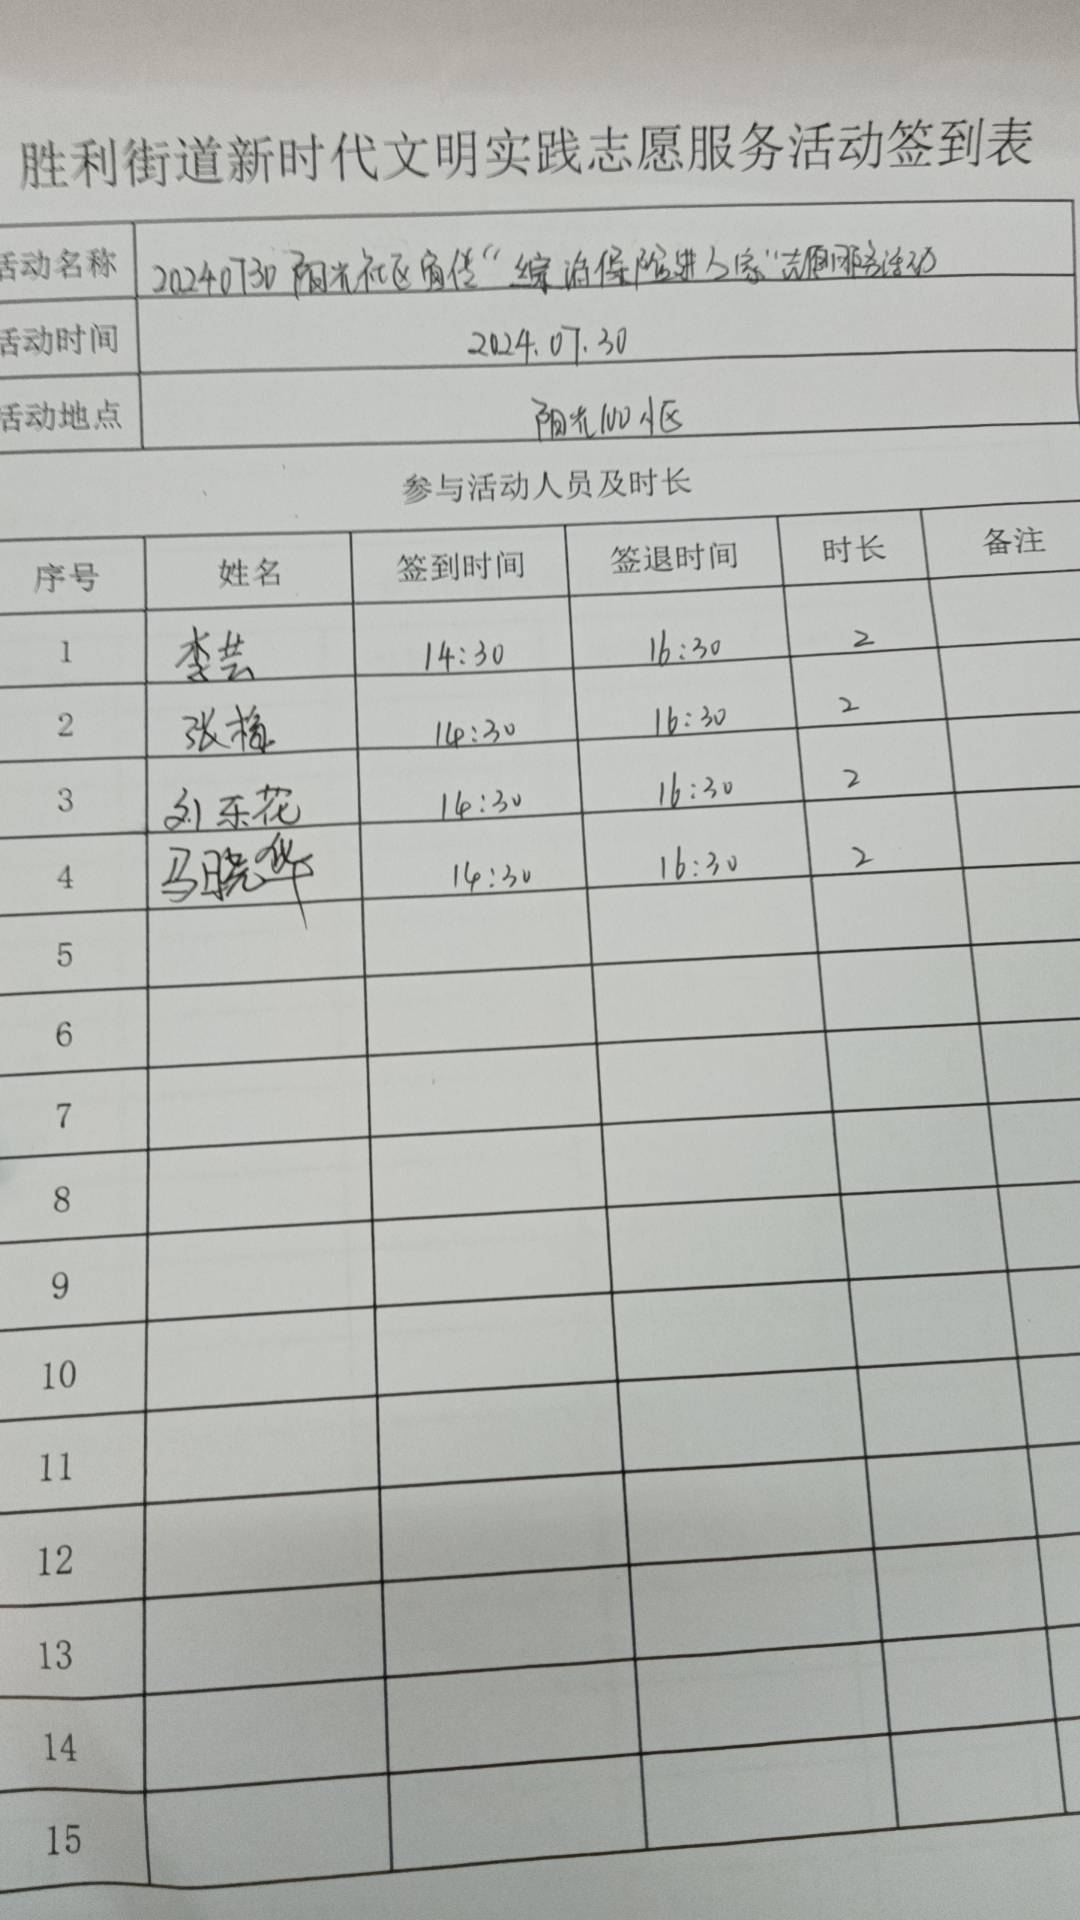 胜利街道新时代文明实践志愿服务活动签到表
活动名称 20240730阳光社区宣传“综治保险进人家”志愿服务活动
活动时间 2024.07.30
活动地点 阳光100小区
参与活动人员及时长
序号 姓名 签到时间 签退时间 时长 备注
1 李芸 14:30 16:30 2
2 张梅 14:30 16:30 2
3 刘东花 14:30 16:30 2
4 马晓华 14:30 16:30 2
5
6
7
8
9
10
11
12
13
14
15